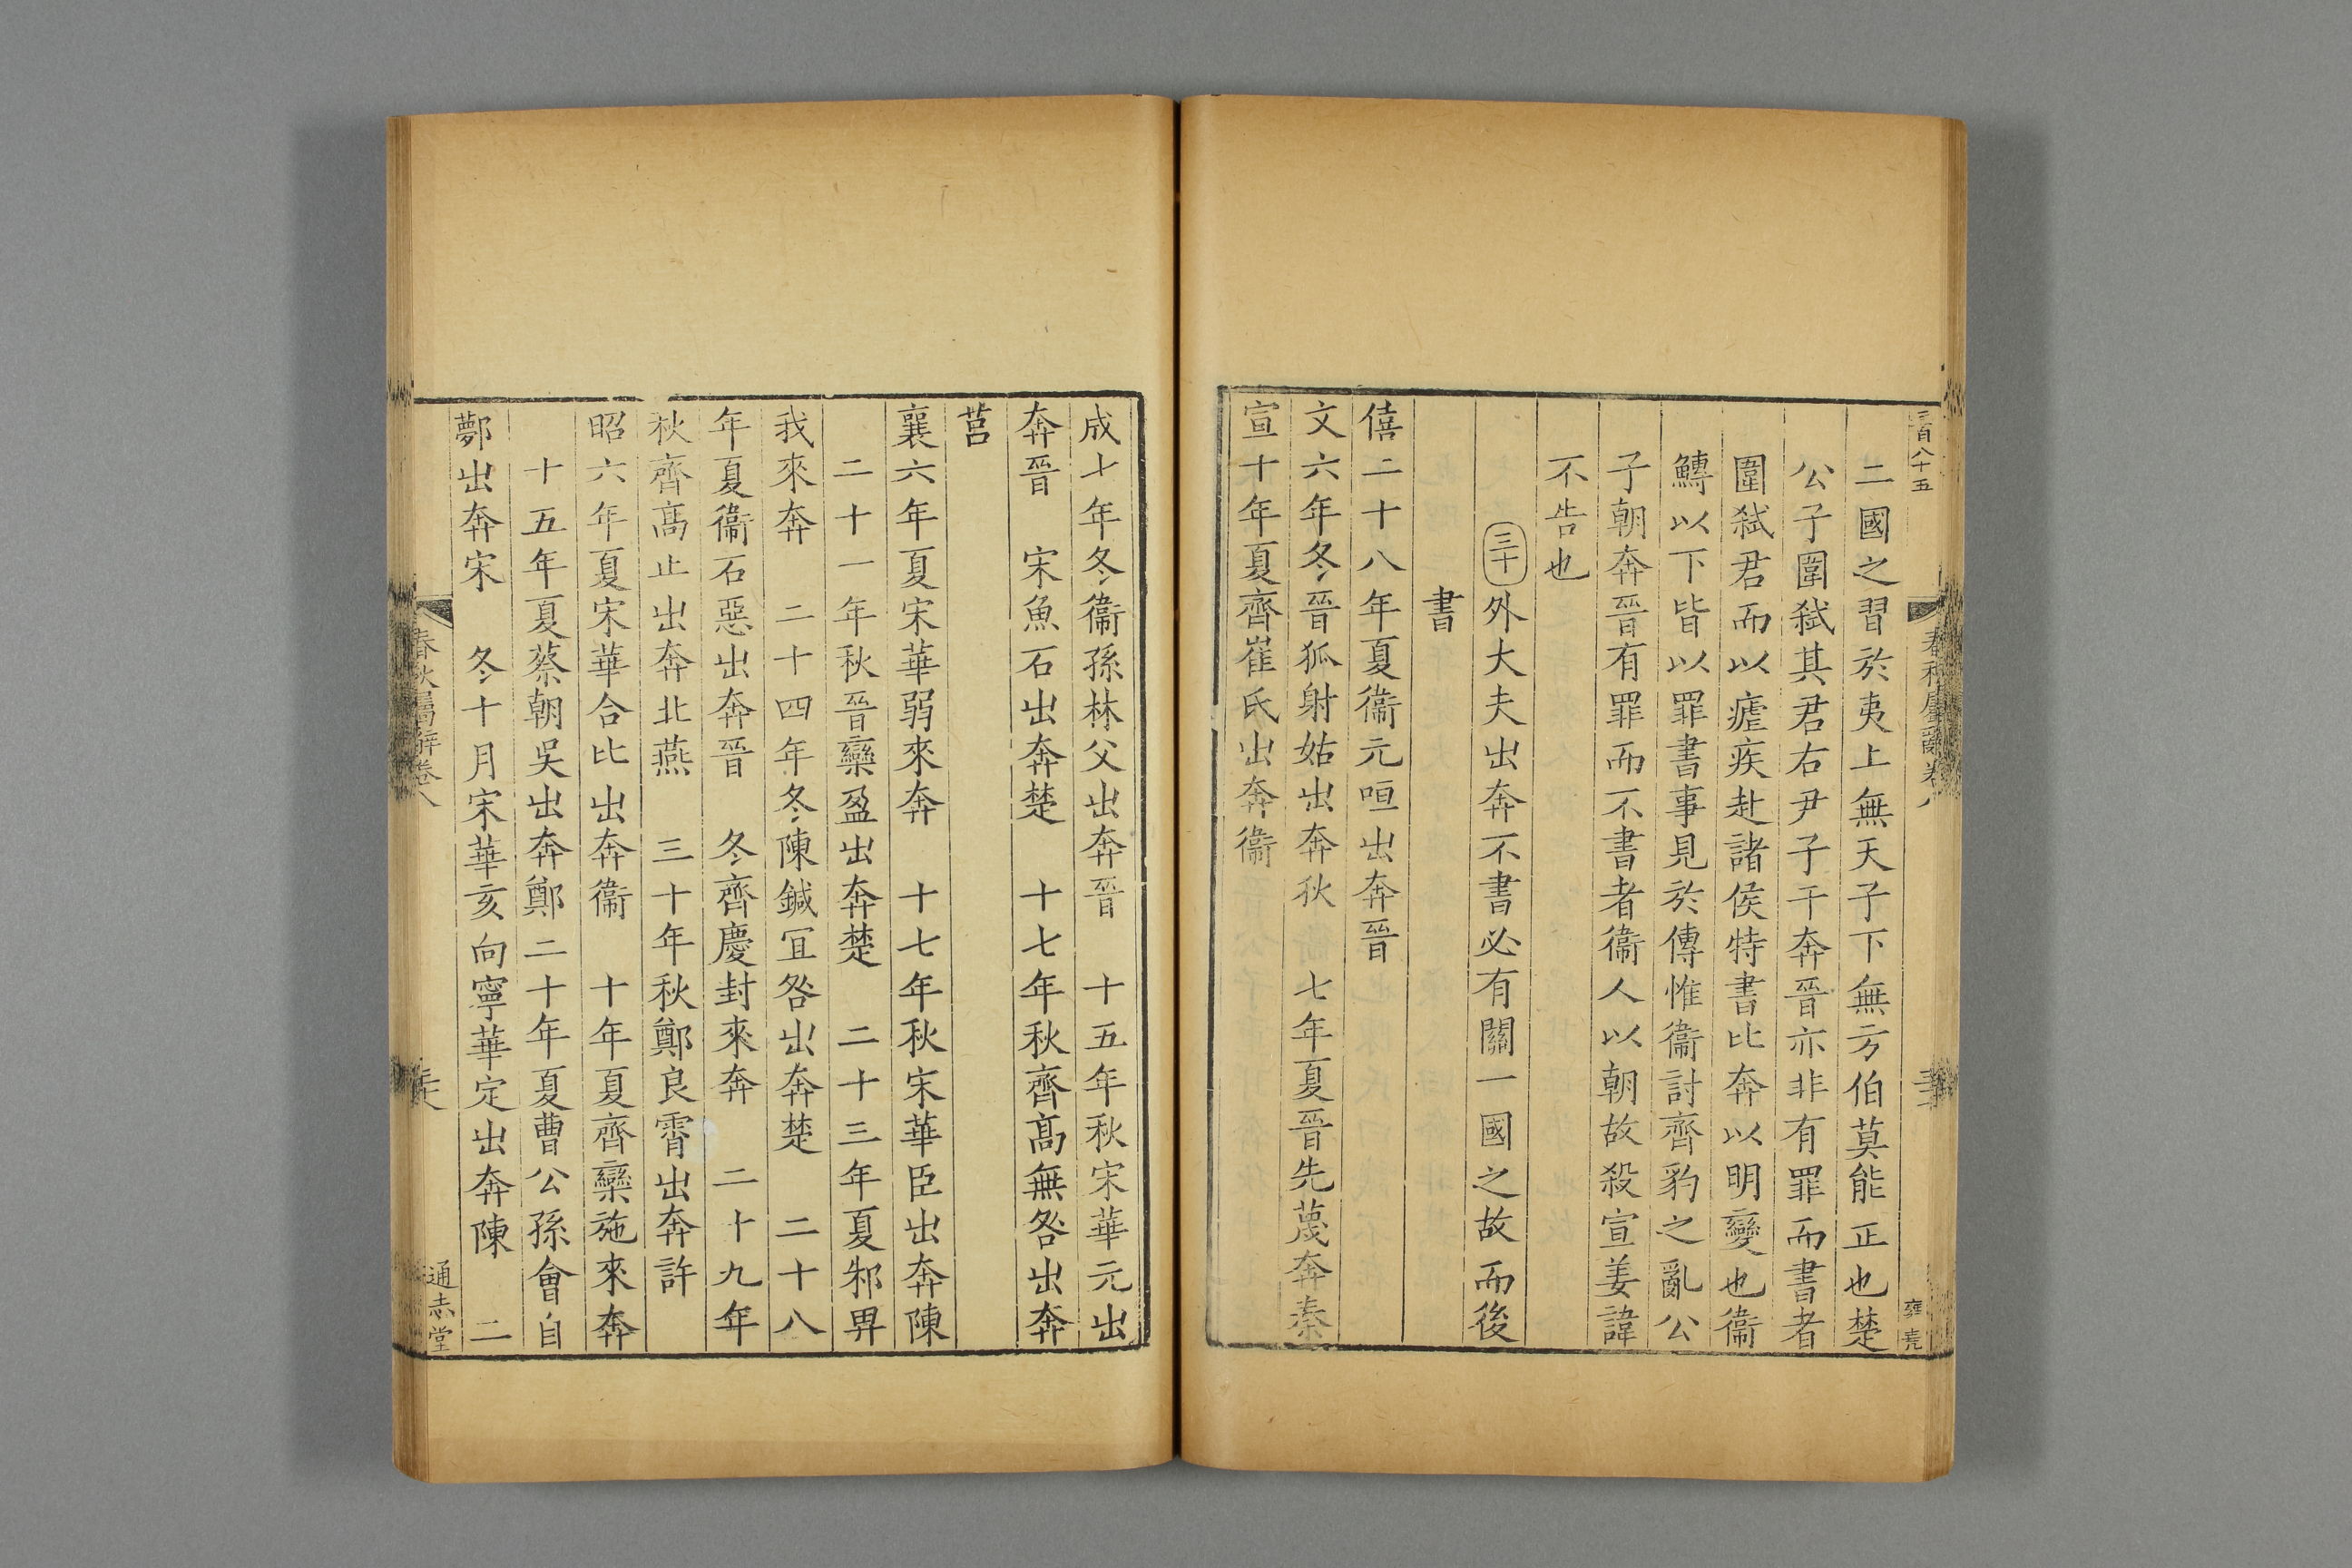 三百八十五
春秋屬辭卷八
二國之習於夷上無天子下無方伯莫能正也楚
公子圍弑其君右尹子干奔晉亦非有罪而書者
圍弑君而以瘧疾赴諸侯特書比奔以明變也衞
鱄以下皆以罪書事見於傳惟衞討齊豹之亂公
子朝奔晉有罪而不書者衞人以朝故殺宣姜諱
不告也
三十外大夫出奔不書必有關一國之故而後
書
僖二十八年夏衞元咺出奔晉
文六年冬晉狐射姑出奔狄 七年夏晉先蔑奔秦
宣十年夏齊崔氏出奔衞
成七年冬衞孫林父出奔晉 十五年秋宋華元出
奔晉 宋魚石出奔楚 十七年秋齊高無咎出奔
莒
襄六年夏宋華弱來奔 十七年秋宋華臣出奔陳
二十一年秋晉欒盈出奔楚 二十三年夏邾畀
我來奔 二十四年冬陳鍼宜咎出奔楚 二十八
年夏衞石惡出奔晉 冬齊慶封來奔 二十九年
秋齊高止出奔北燕 三十年秋鄭良霄出奔許
昭六年夏宋華合比出奔衞 十年夏齊欒施來奔
十五年夏蔡朝吳出奔鄭 二十年夏曹公孫會自
鄸出奔宋 冬十月宋華亥向寧華定出奔陳 二
春秋屬辭卷八
通志堂